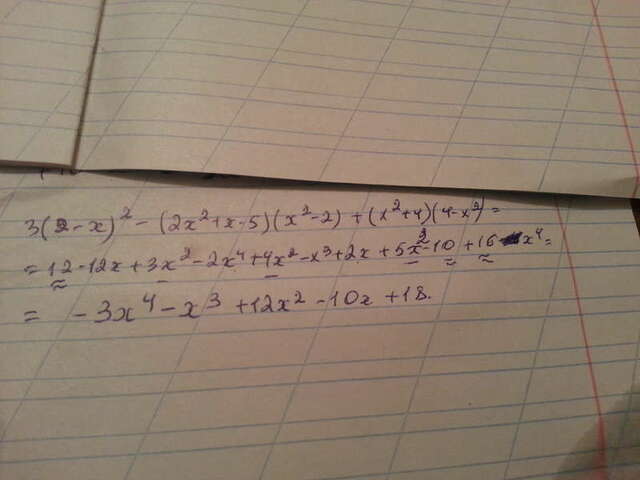 3(2-x)² - (2x²+x-5)(x²-2) + (x²+4)(4-x²) =
= 12-12x+3x²-2x⁴+4x²-x³+2x+5x²-10+16-x⁴=
= -3x⁴-x³+12x²-10x+18.